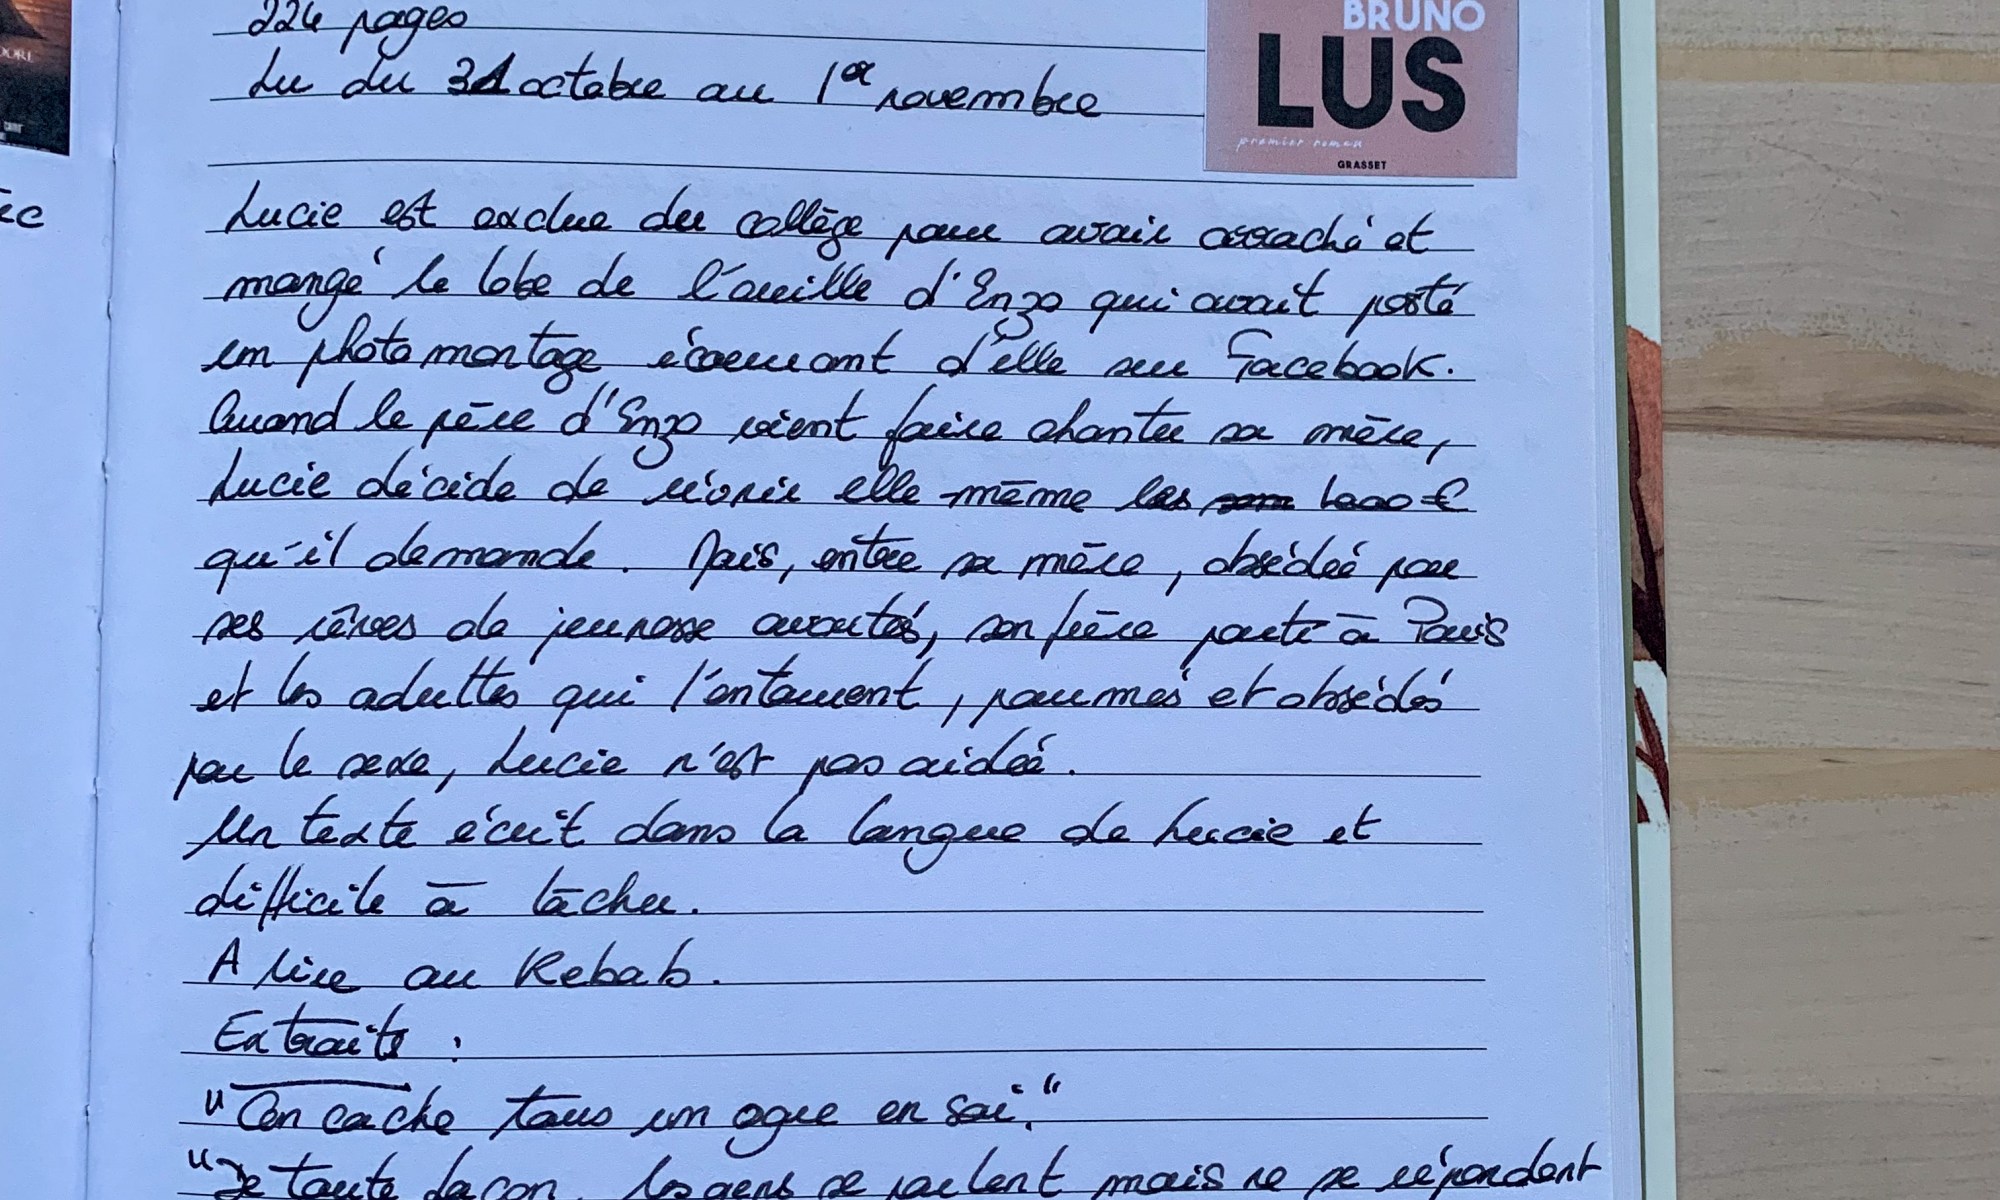 224 pages
Lu du 31 octobre au 1er novembre
BRUNO
LUS
premier roman
GRASSET
Lucie est exclue du collège pour avoir arraché et
mangé le lobe de l'oreille d'Enzo qui avait posté
un photomontage écoeurant d'elle sur Facebook.
Quand le père d'Enzo vient faire chanter sa mère,
Lucie décide de réunir elle-même les 1000 €
qu'il demande. Mais, entre sa mère, obsédée par
ses rêves de jeunesse avortés, son frère parti à Paris
et les adultes qui l'entourent, paumés et obsédés
par le sexe, Lucie n'est pas aidée.
Un texte écrit dans la langue de Lucie et
difficile à lâcher.
A lire au Kebab.
Extraits :
"On cache tous un ogre en soi."
"De toute façon, les gens se parlent mais ne se répondent